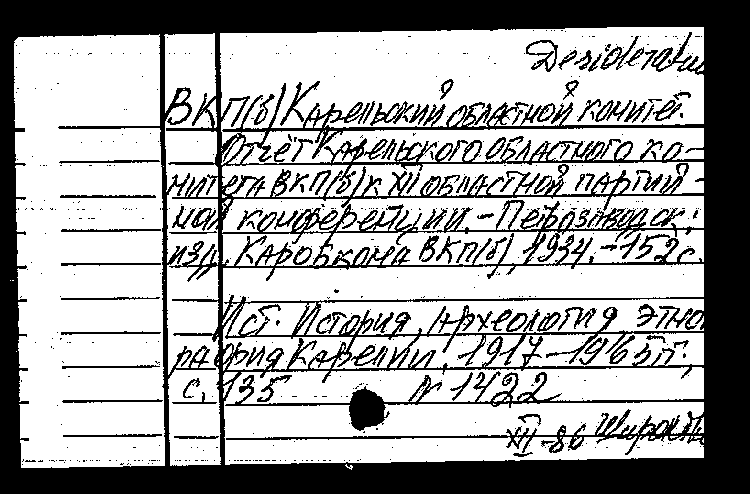 Desideratum
ВКП(б) Карельский областной комитет.
Отчёт Карельского областного ко-
митета ВКП(б) к XI областной партий-
ной конференции. - Петрозаводск:
изд. Каробкома ВКП(б), 1934. - 152 с.
Ист. История, археология, этног
рафия Карелии. 1917-1965 гг.,
с. 135 N 1422
XII-86